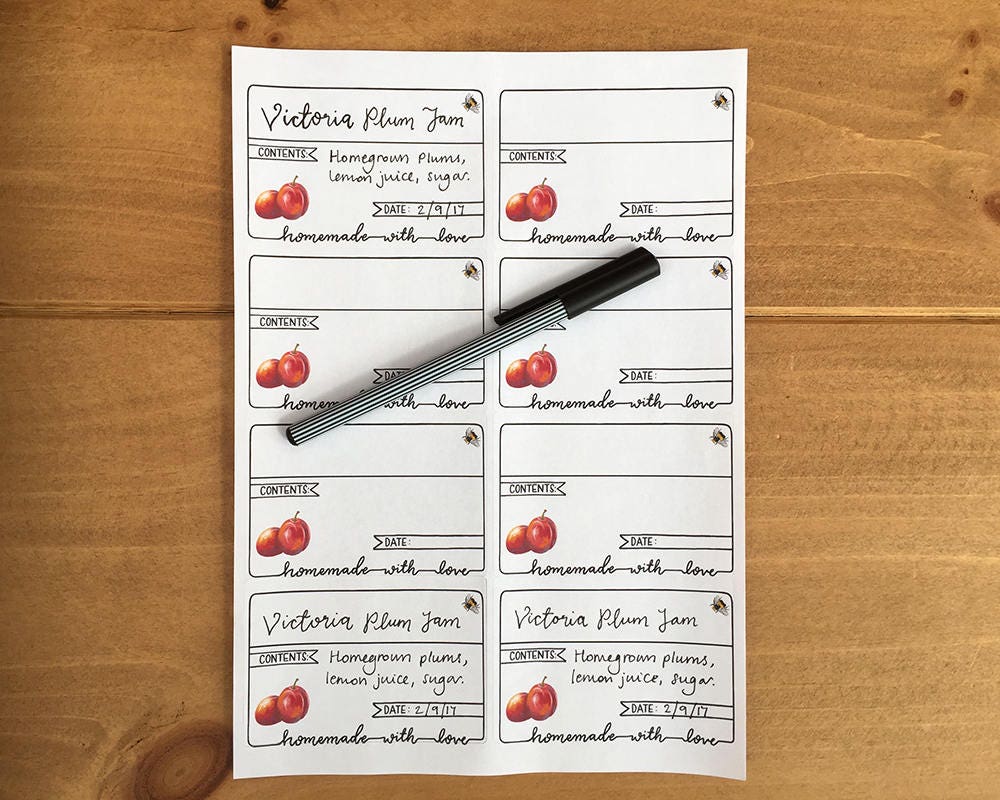 Victoria Plum Jam
CONTENTS:
Homegrown plums,
lemon juice, sugar.
DATE: 2/9/17
homemade with love
CONTENTS:
DATE:
homemade with love
CONTENTS:
DATE:
homemade with love
DATE:
homemade with love
CONTENTS:
DATE:
homemade with love
CONTENTS:
DATE:
homemade with love
Victoria Plum Jam
CONTENTS:
Homegrown plums,
lemon juice, sugar.
DATE: 2/9/17
homemade with love
Victoria Plum Jam
CONTENTS:
Homegrown plums,
lemon juice, sugar.
DATE: 2/9/17
homemade with love